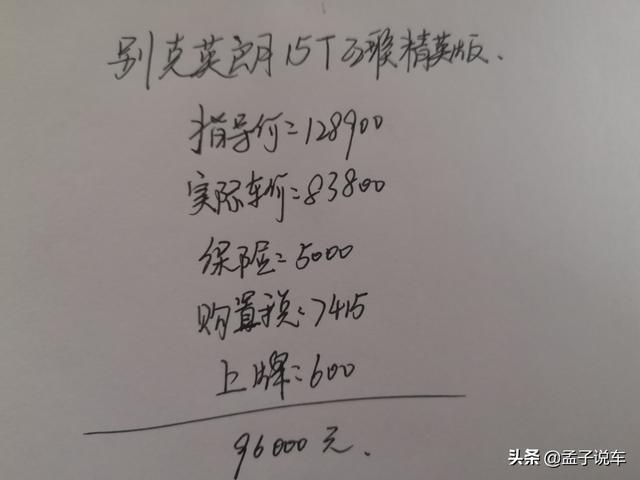 别克英朗15T互联精英版.
指导价=128900
实际车价=83800
保险=5000
购置税=7415
上牌=600
96000元.
头条@孟子说车